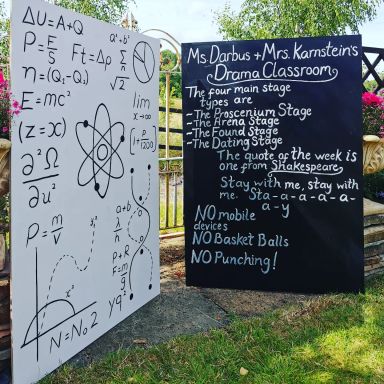 ΔU=A+Q
P=F/S
Ft=Δp
a²+b²
Σ
√2
η=(Q₁-Q₁)
E=mc²
lim
x→∞
(z=x)
∂²Ω
∂u²
P=m/v
x²
a+b
λ/n
P+R
x²
N=No2
yq
Ms. Darbus + Mrs. Karnstein's
Drama Classroom
The four main stage
types are
-The Proscenium Stage
-The Arena Stage
-The Found Stage
-The Dating Stage
The quote of the week is
one from Shakespeare,
Stay with me, stay with
me. Sta-a-a-a-a-
a-y
NO mobile
devices
NO Basket Balls
NO Punching!